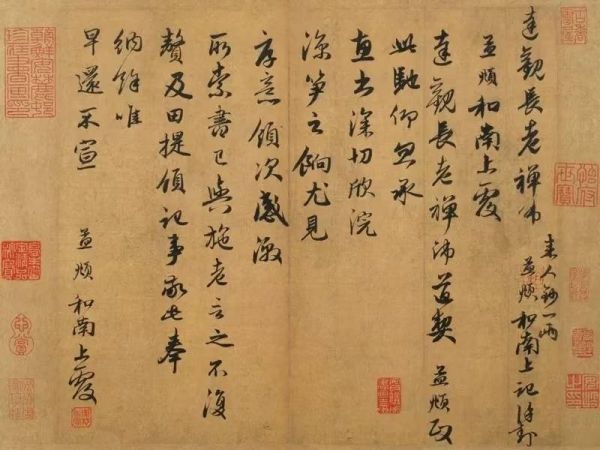 達觀長老禪師
來人鈔一兩
孟頫和南上記謹封
孟頫和南上覆
達觀長老禪師道契 孟頫政
此馳仰忽承
惠書深切欣浣
涼笋之餉尤見
厚意領次感激
所索書已與施老言之不復
贅及田提領記事敬此奉
納餘唯
早還不宣
孟頫和南上覆